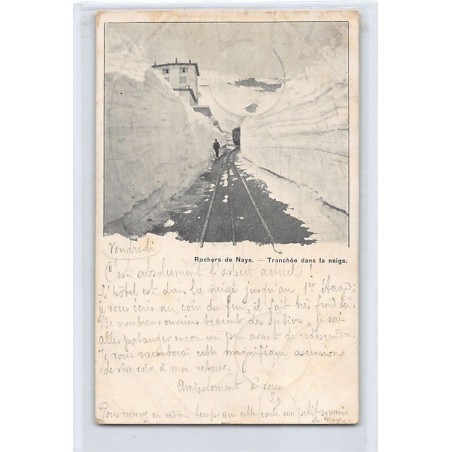 Rochers de Naye. — Tranchée dans la neige.
Vendredi
C'est absolument l'aspect actuel!
L'hôtel est dans la neige jusqu'au 1er étage;
je vous écris au coin du feu, il fait très froid ici.
De nombreux ouvriers
aller patauger encore un peu avant de redescendre
Je vous raconterai cette magnifique ascension
de vive voix à mon retour.
Amicalement à vous
Vous recevrez en même temps que cette carte un petit souvenir
de Naye